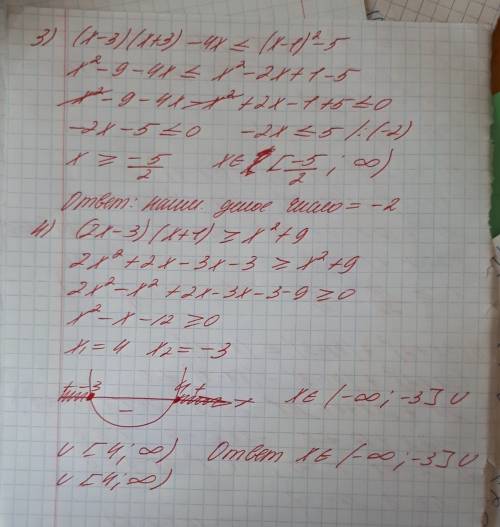 3) (x-3)(x+3) -4x ≤ (x-1)²-5
x²-9-4x ≤ x²-2x+1-5
x²-9-4x-x²+2x-1+5≤0
-2x-5≤0 -2x≤5 /:(-2)
x ≥ -5/2 x∈ [-5/2; ∞)
Ответ: наим. целое число = -2
4) (2x-3)(x+1) ≥ x²+9
2x²+2x-3x-3 ≥ x²+9
2x²-x²+2x-3x-3-9≥0
x²-x-12≥0
x₁=4 x₂=-3
+ -3 - 4 + x x∈ (-∞; -3] ∪
∪ [4; ∞) Ответ x∈ (-∞; -3] ∪
∪ [4; ∞)